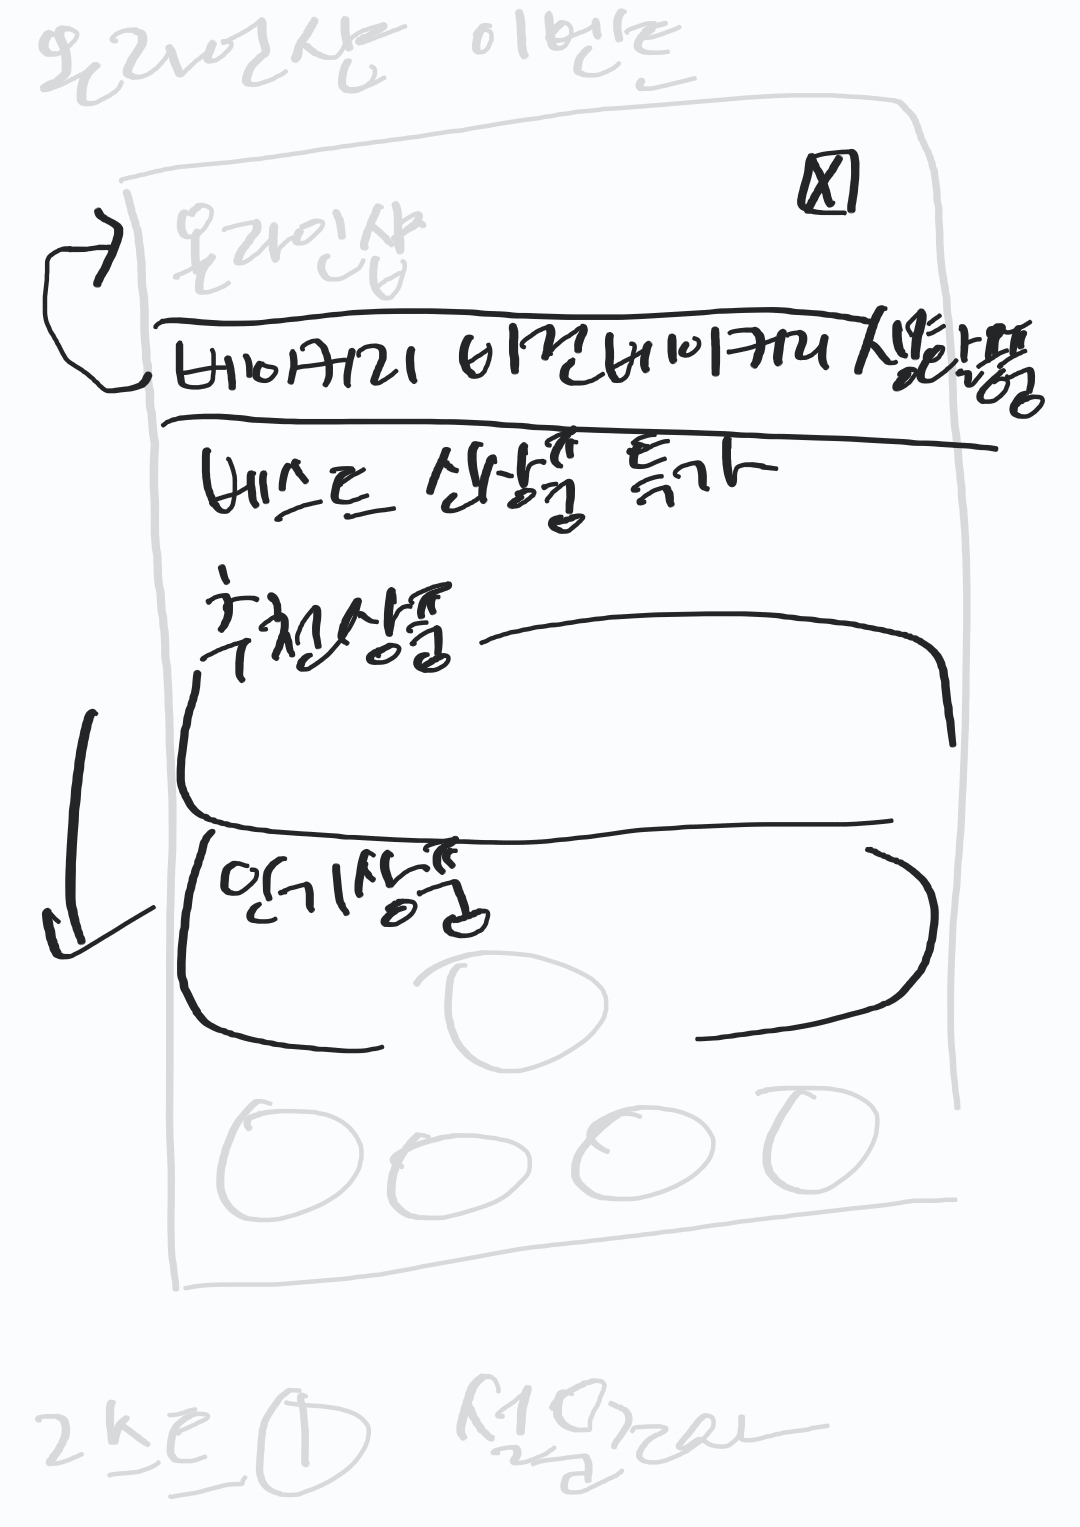 온라인샵 이벤트
X
온라인샵
베이커리 비건베이커리 생활용품
베스트 신상품 특가
추천상품
인기상품
리스트 ①